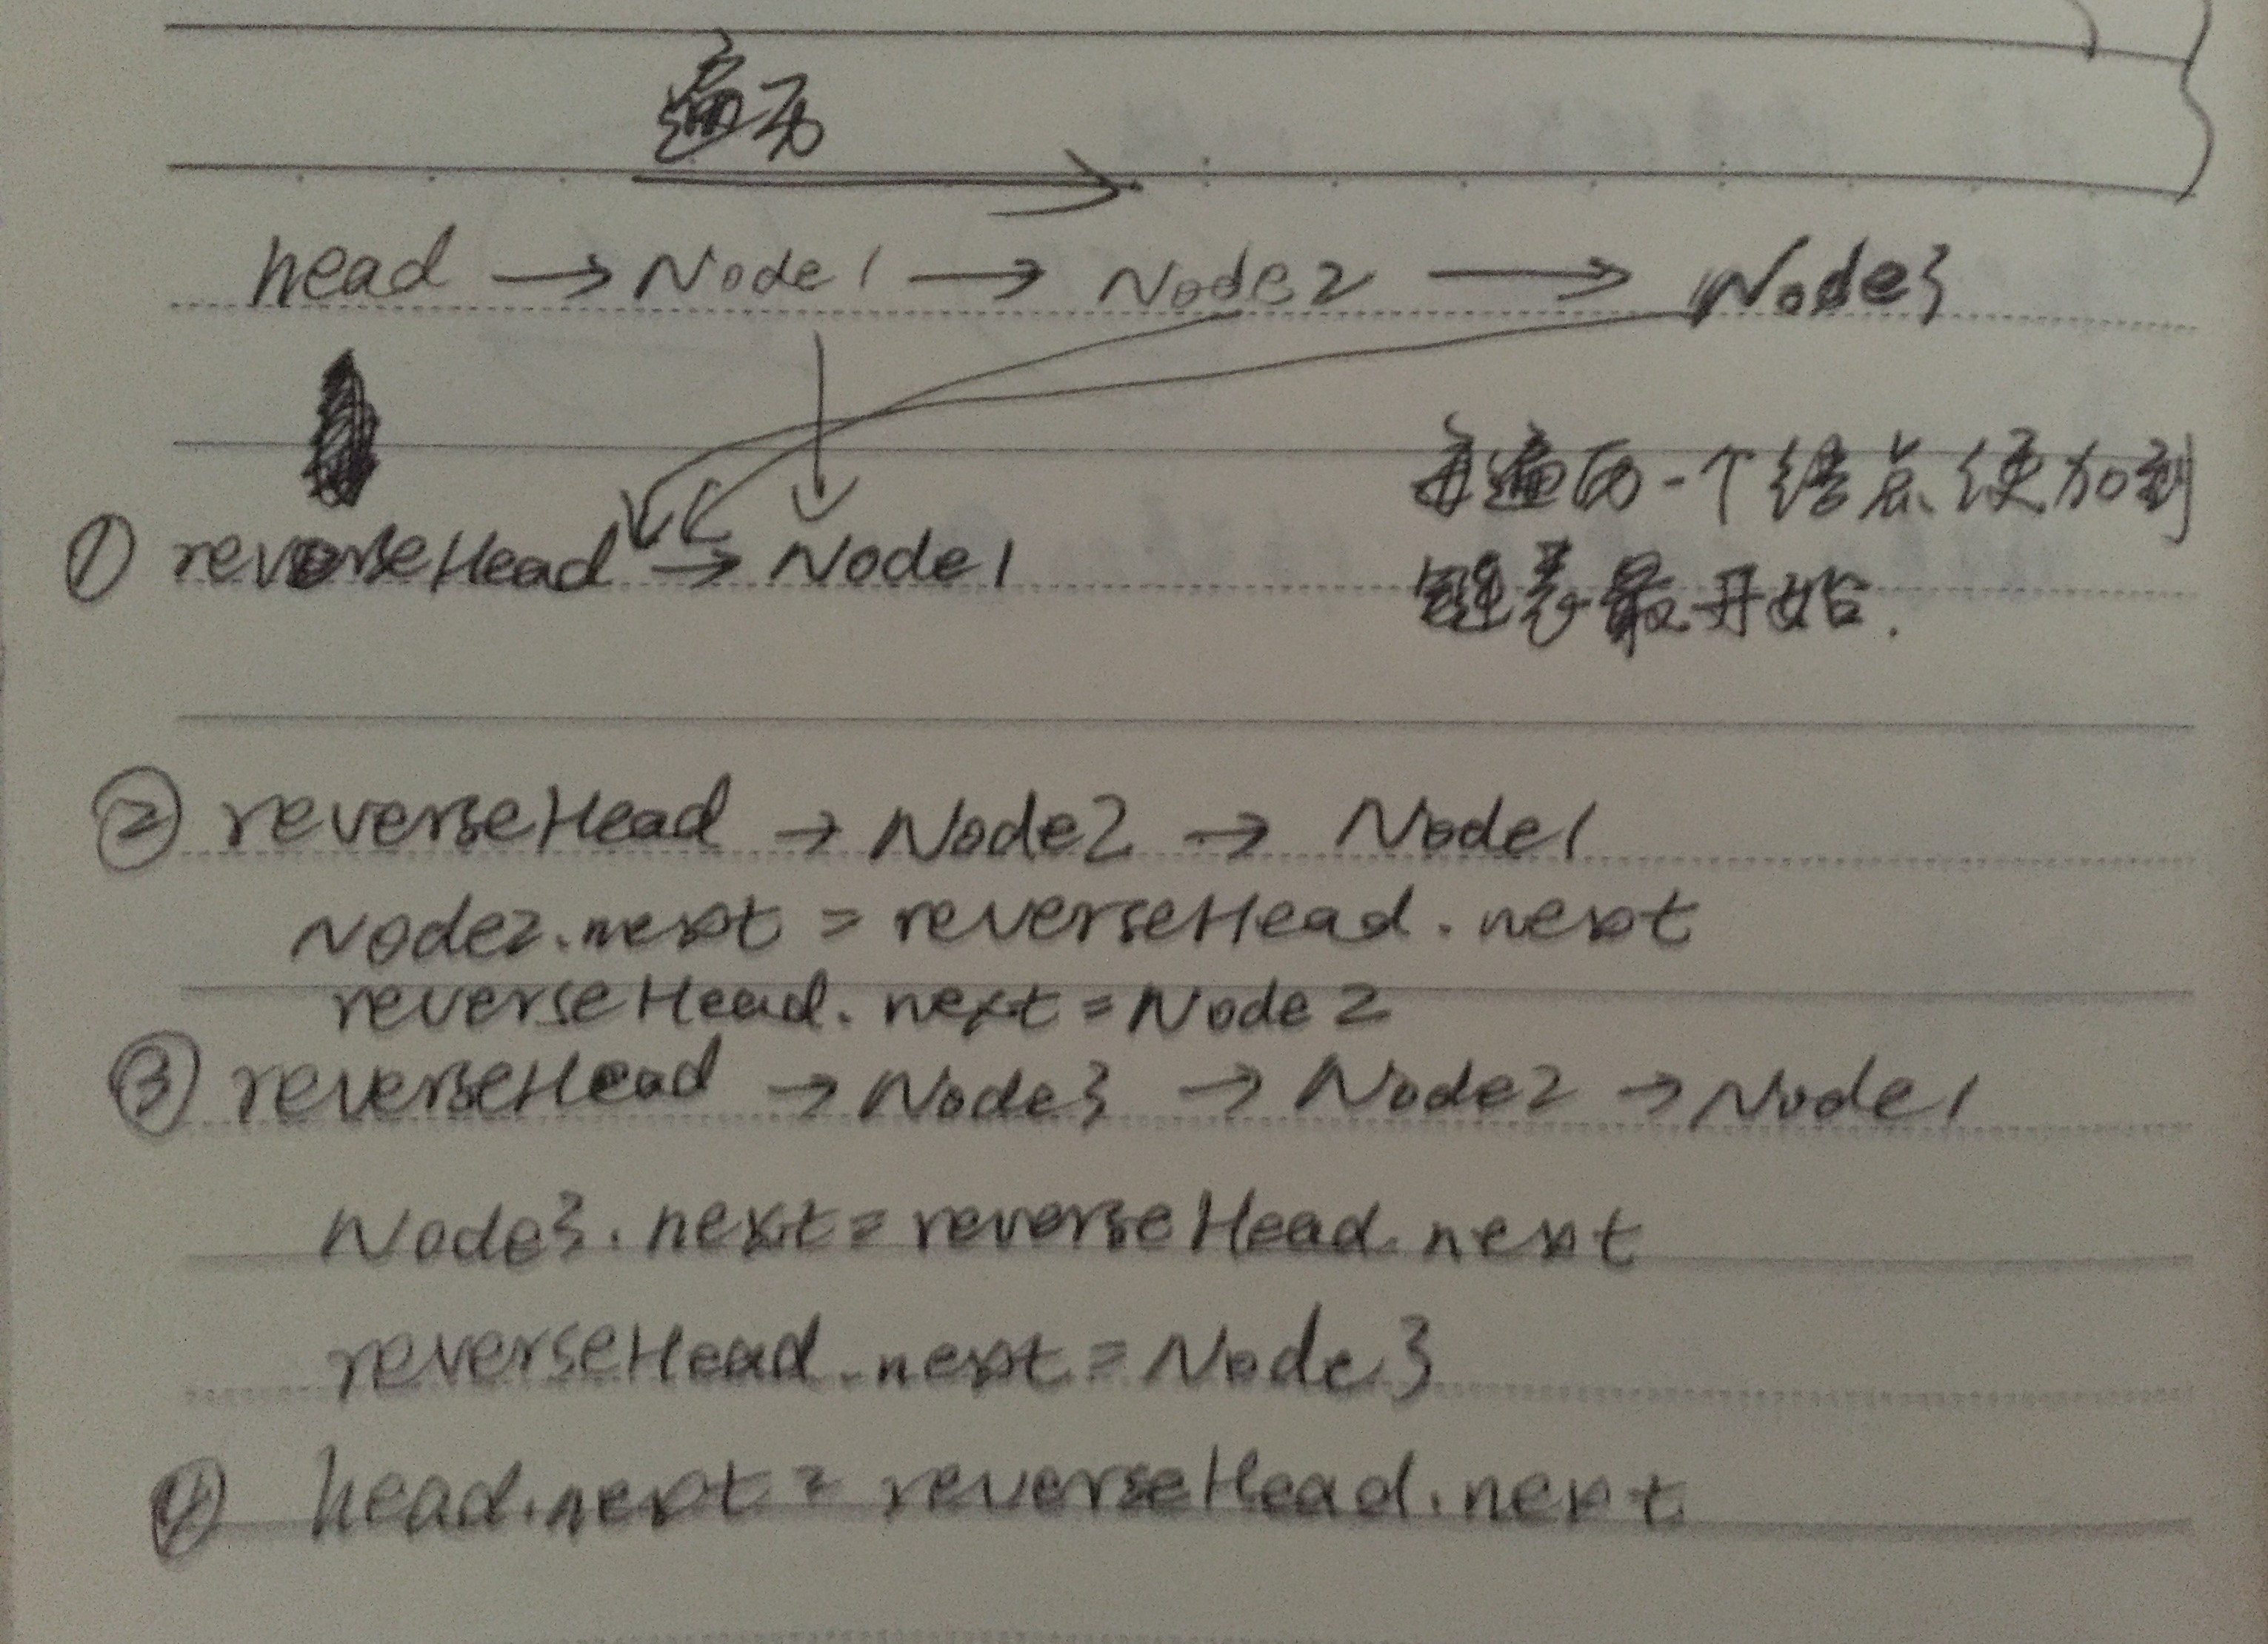 遍历
head → Node1 → Node2 → Node3
每遍历一个结点便加到
① reverseHead → Node1
链表最开始.
② reverseHead → Node2 → Node1
Node2.next = reverseHead.next
reverseHead.next = Node2
③ reverseHead → Node3 → Node2 → Node1
Node3.next = reverseHead.next
reverseHead.next = Node3
④ head.next = reverseHead.next